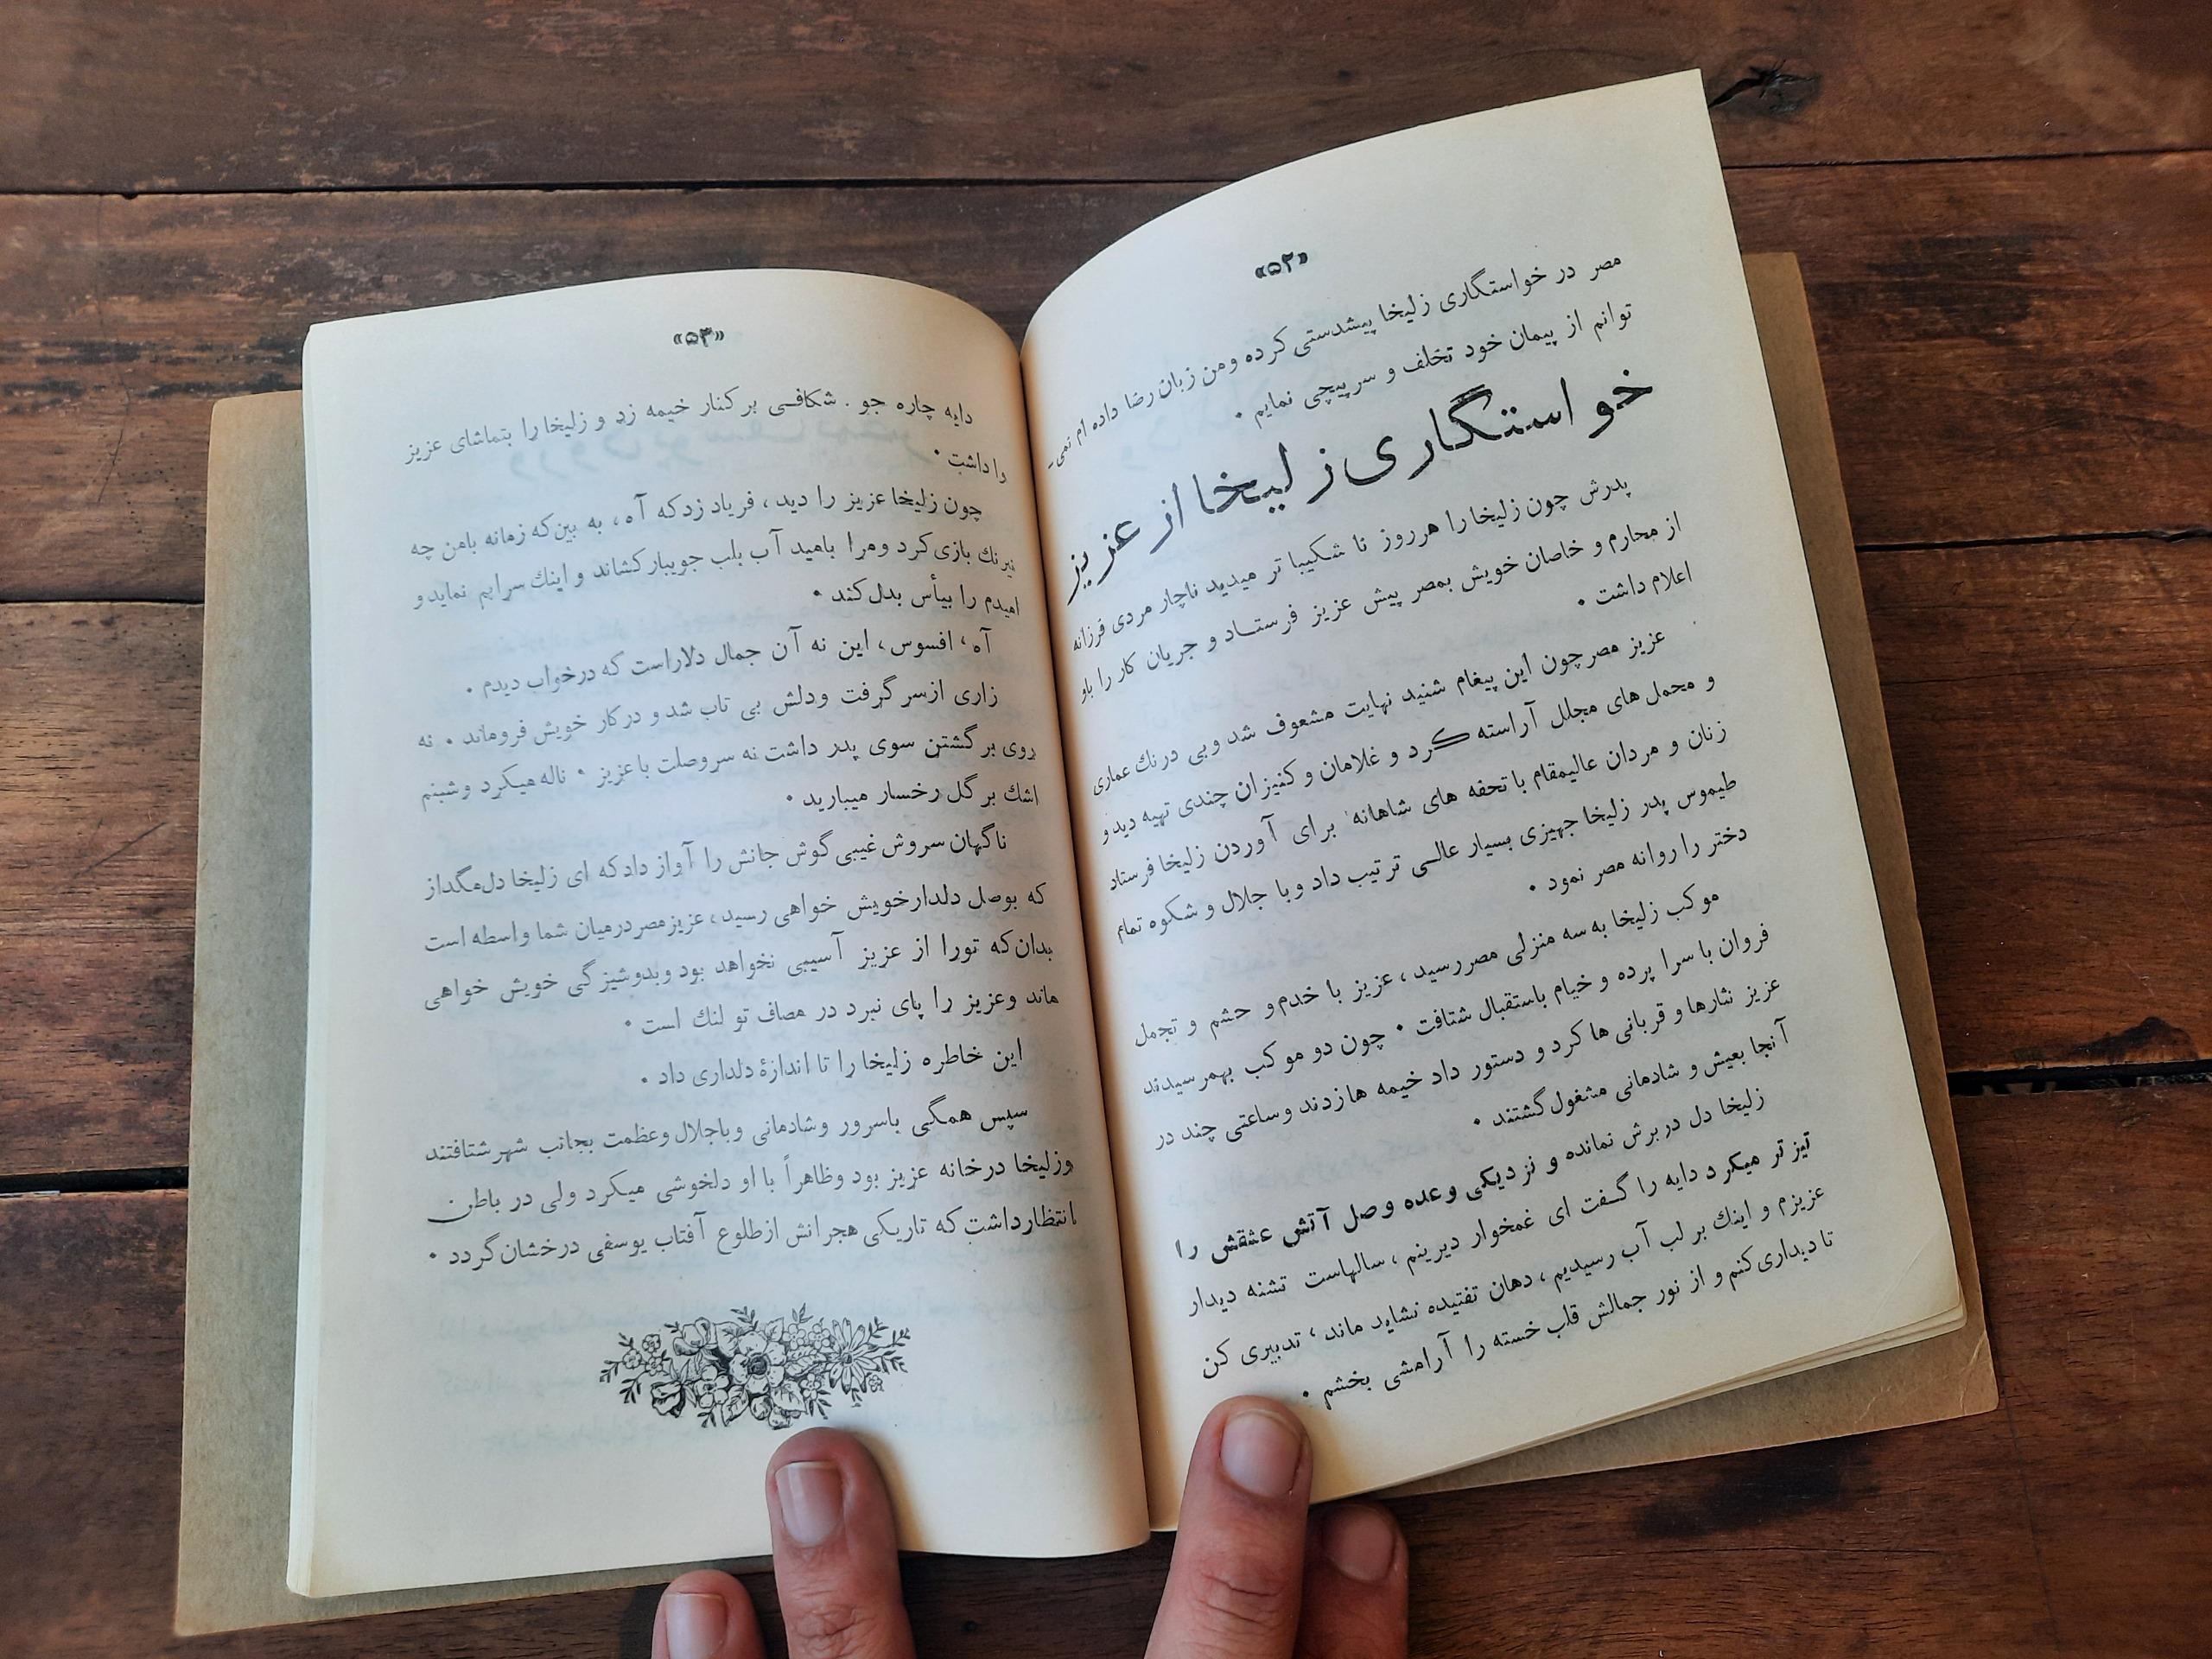 «۵۲»
مصر در خواستگاری زلیخا پیشدستی کرده ومن زبان رضا داده ام نمی-
توانم از پیمان خود تخلف و سرپیچی نمایم .
خواستگاری زلیخا از عزیز
پدرش چون زلیخا را هرروز نا شکیبا تر میدید ناچار مردی فرزانه
از محارم و خاصان خویش بمصر پیش عزیز فرستاد و جریان کار را باو
اعلام داشت .
عزیز مصر چون این پیغام شنید نهایت مشعوف شد وبی درنك عماری
و محمل های مجلل آراسته کرد و غلامان و کنیزان چندی تهیه دید و
زنان و مردان عالیمقام با تحفه های شاهانه برای آوردن زلیخا فرستاد
طیموس پدر زلیخا جهیزی بسیار عالی ترتیب داد وبا جلال و شکوه تمام
دختر را روانه مصر نمود .
موکب زلیخا به سه منزلی مصر رسید ، عزیز با خدم و حشم و تجمل
فروان با سرا پرده و خیام باستقبال شتافت . چون دو موکب بهمرسیدند
عزیز نثارها و قربانی ها کرد و دستور داد خیمه هازدند وساعتی چند در
آنجا بعیش و شادمانی مشغول گشتند .
زلیخا دل دربرش نمانده و نزدیکی وعده وصل آتش عشقش را
تیز تر میکرد دایه را گفت ای غمخوار دیرینم ، سالهاست تشنه دیدار
عزیزم و اینك بر لب آب رسیدیم ، دهان تفتیده نشاید ماند ، تدبیری کن
تا دیداری کنم و از نور جمالش قلب خسته را آرامشی بخشم .
«۵۳»
دایه چاره جو . شکافی بر کنار خیمه زد و زلیخا را بتماشای عزیز
واداشت .
چون زلیخا عزیز را دید ، فریاد زد که آه ، به بین که زمانه بامن چه
نیرنك بازی کرد ومرا بامید آب بلب جویبار کشاند و اینك سرابم نماید و
امیدم را بیأس بدل کند .
آه ، افسوس ، این نه آن جمال دلاراست که درخواب دیدم .
زاری ازسر گرفت ودلش بی تاب شد و درکار خویش فروماند . نه
روی بر گشتن سوی پدر داشت نه سروصلت با عزیز . ناله میکرد وشبنم
اشك بر گل رخسار میبارید .
ناگهان سروش غیبی گوش جانش را آواز داد که ای زلیخا دل مگداز
که بوصل دلدار خویش خواهی رسید ، عزیز مصر درمیان شما واسطه است
بدان که تورا از عزیز آسیبی نخواهد بود وبدوشیزگی خویش خواهی
ماند وعزیز را پای نبرد در مصاف تو لنك است .
این خاطره زلیخا را تا اندازهٔ دلداری داد .
سپس همگی باسرور وشادمانی وباجلال وعظمت بجانب شهر شتافتند
وزلیخا درخانه عزیز بود وظاهراً با او دلخوشی میکرد ولی در باطن
انتظار داشت که تاریکی هجرانش ازطلوع آفتاب یوسفی درخشان گردد .